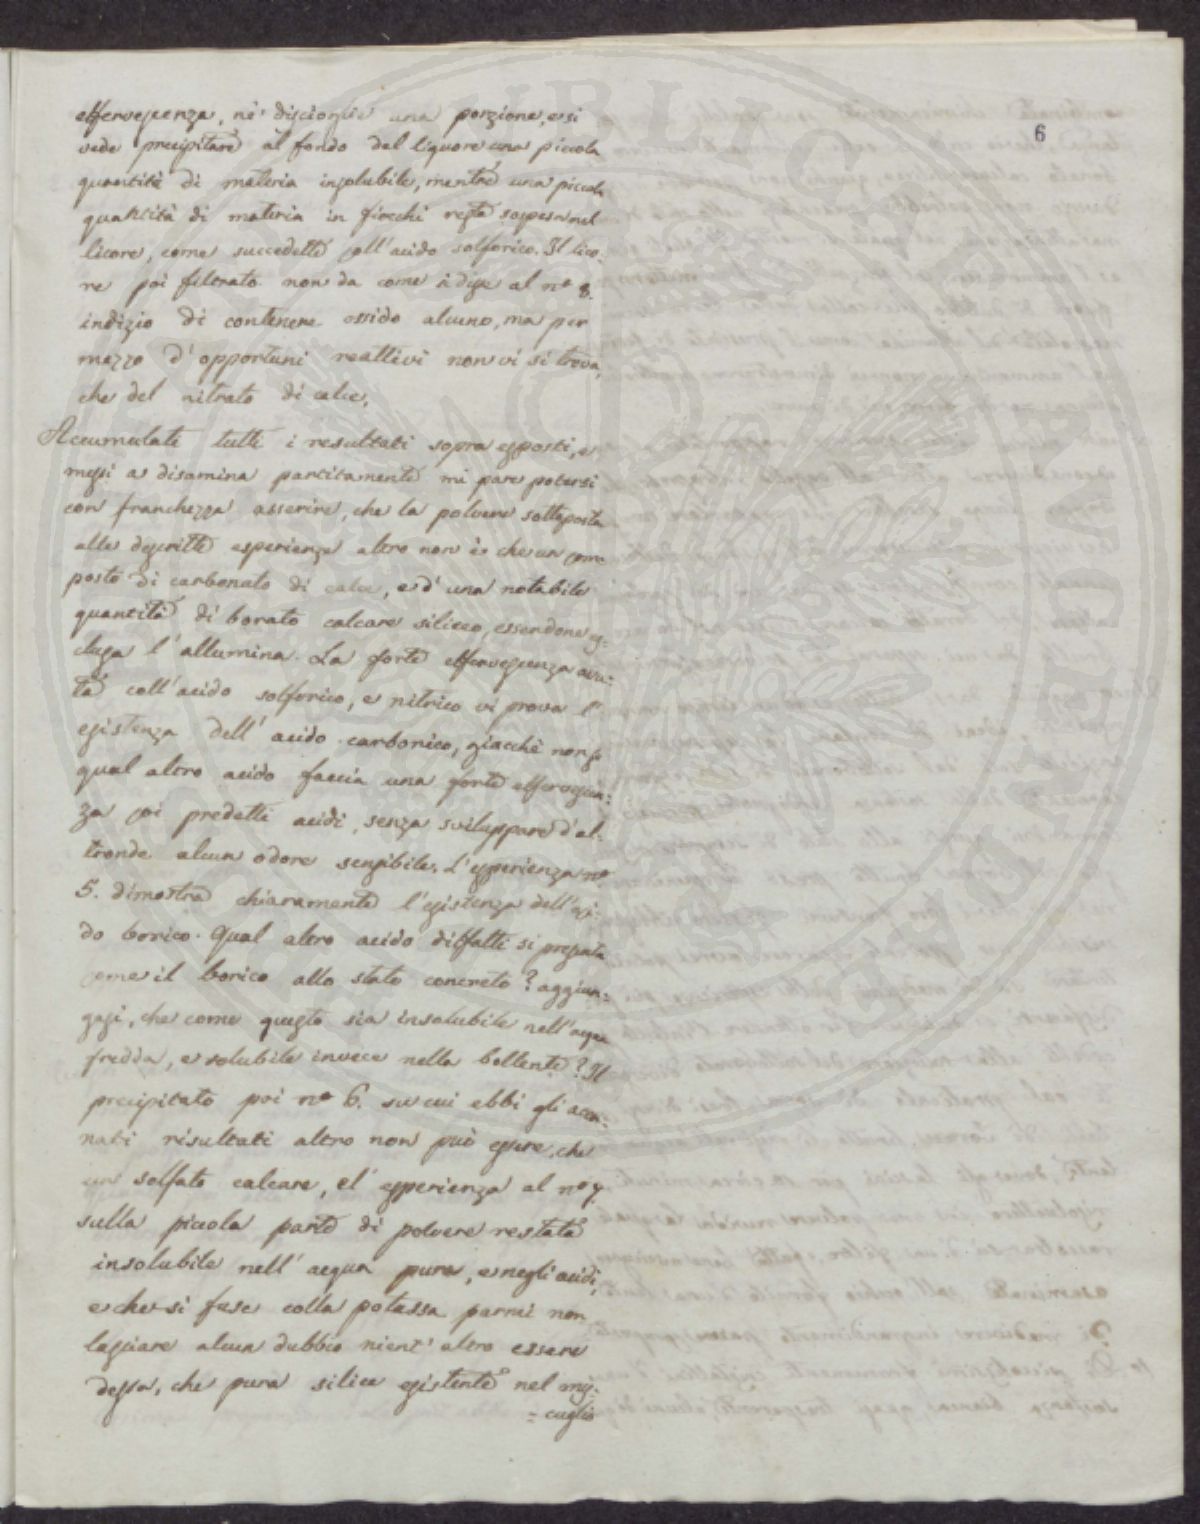 6
effervescenza, nè discioglie una porzione, e si
vede precipitare al fondo del liquore una piccola
quantità di materia insolubile, mentre una piccola
quantità di materia in fiocchi resta sospesa nel
licore, come succedette coll'acido solforico. Il lico-
re poi filtrato non da come si disse al nº 8.
indizio di contenere ossido alcuno, ma per
mezzo d'opportuni reattivi non vi si trova,
che del nitrato di calce.
Accumulati tutti i resultati sopra esposti, e
messi a disamina partitamente mi pare potersi
con franchezza asserire, che la polvere sottoposta
alle descritte esperienze altro non è che un com-
posto di carbonato di calce, e d'una notabile
quantità di borato calcare siliceo, essendone es-
clusa l'allumina. La forte effervescenza avu-
ta coll'acido solforico, e nitrico vi prova l'
esistenza dell'acido carbonico, giacchè non so
qual altro acido faccia una forte effervescen=
za coi predetti acidi, senza sviluppare d'al-
tronde alcun odore sensibile. L'esperienza nº
5. dimostra chiaramente l'esistenza dell'aci-
do borico. Qual altro acido diffatti si presenta
come il borico allo stato concreto? aggiun=
gasi, che come questo sia insolubile nell'acqua
fredda, e solubile invece nella bollente? Il
precipitato poi nº 6. su cui ebbi gli accen=
nati risultati altro non può essere, che
un solfato calcare, e l'esperienza al nº 7.
sulla piccola parte di polvere restata
insolubile nell'acqua pura, e negli acidi,
e che si fuse colla potassa parmi non
lasciare alcun dubbio nient'altro essere
dessa, che pura silice esistente nel mis-
=cuglio